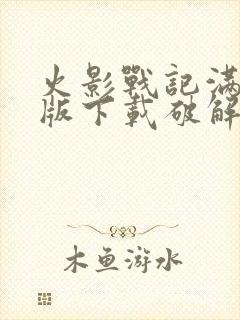 火影戰記滿
版下載破解
木鱼游水